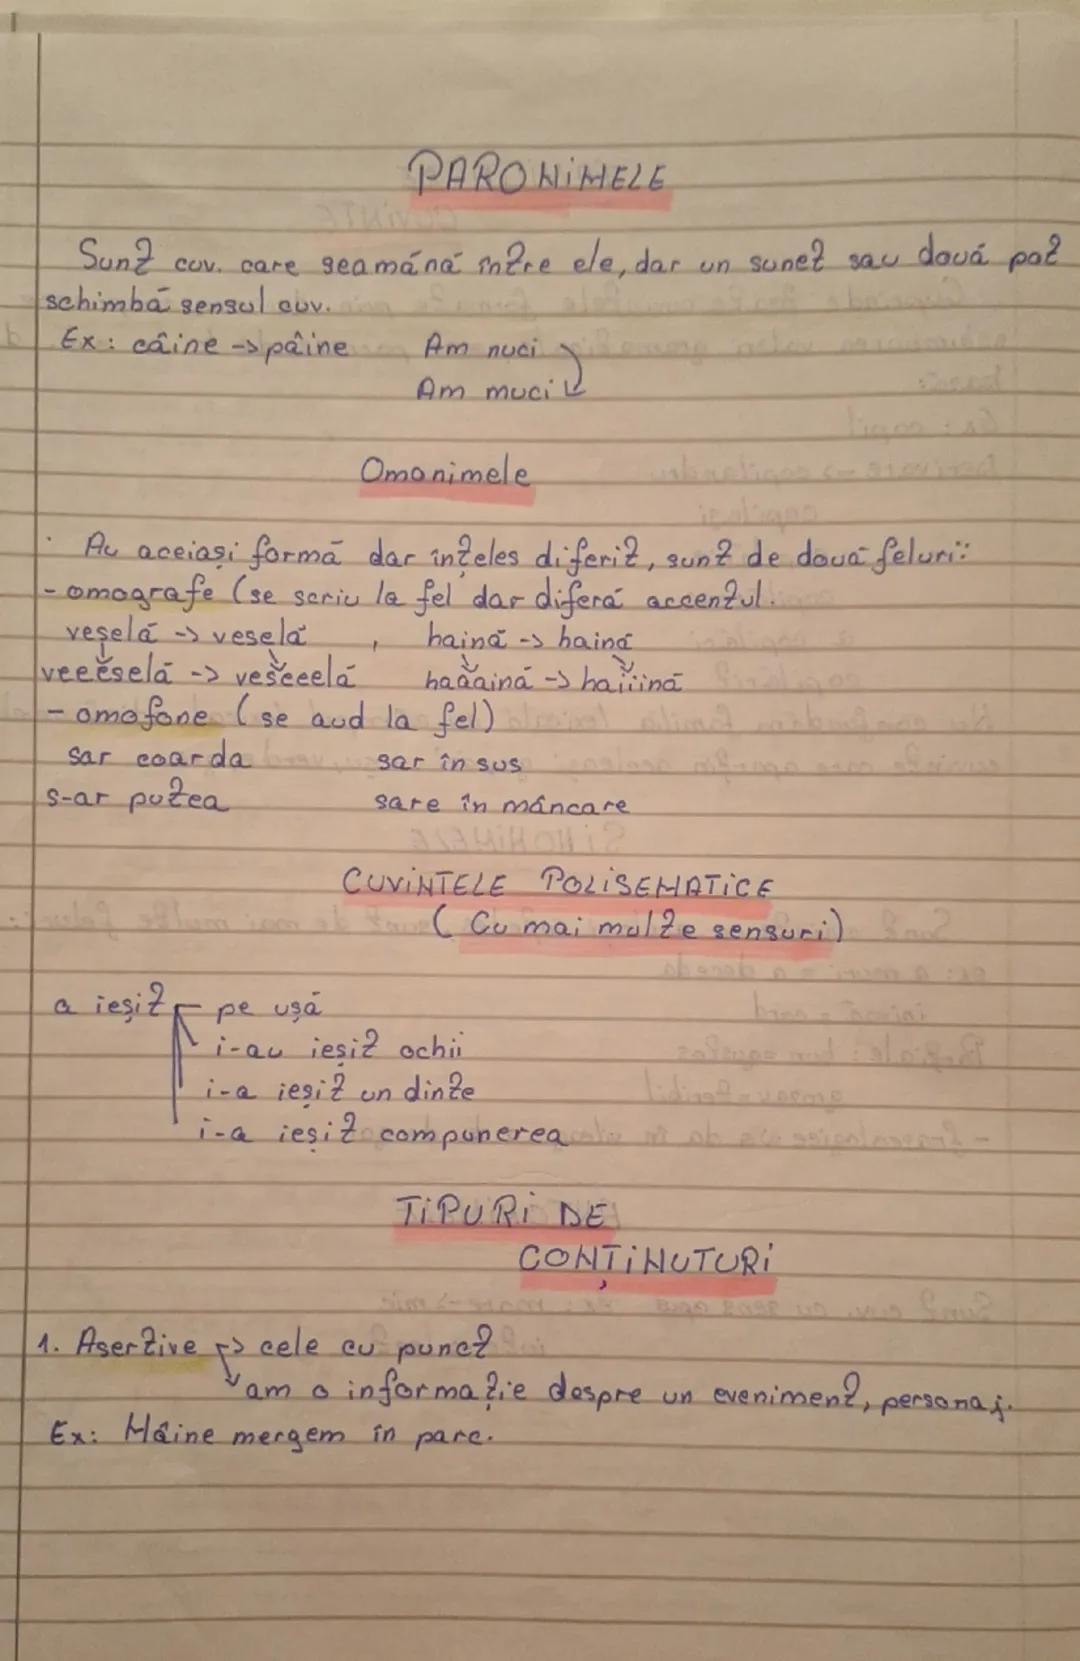 PARONIMELE
Sunt cuv. care seamănă între ele, dar un sunet sau două pot
schimbă sensul cuv.
Ex: câine -> pâine Am nuci
Am muci
Omonimele
Au aceiași formă dar înțeles diferit, sunt de două feluri:
- omografe (se scriu la fel dar diferă accentul.
veselă -> veselă , haină -> haină
veeeselă -> veseeelă haaaină -> haiiină
- omofone (se aud la fel)
sar coarda sar în sus
s-ar putea sare în mâncare
CUVINTELE POLISEMATICE
( Cu mai multe sensuri)
a ieșit pe ușă
i-au ieșit ochii
i-a ieșit un dinte
i-a ieșit compunerea
TIPURI DE
CONȚINUTURI
1. Asertive -> cele cu punct
am o informație despre un eveniment, personaj.
Ex: Mâine mergem în parc.